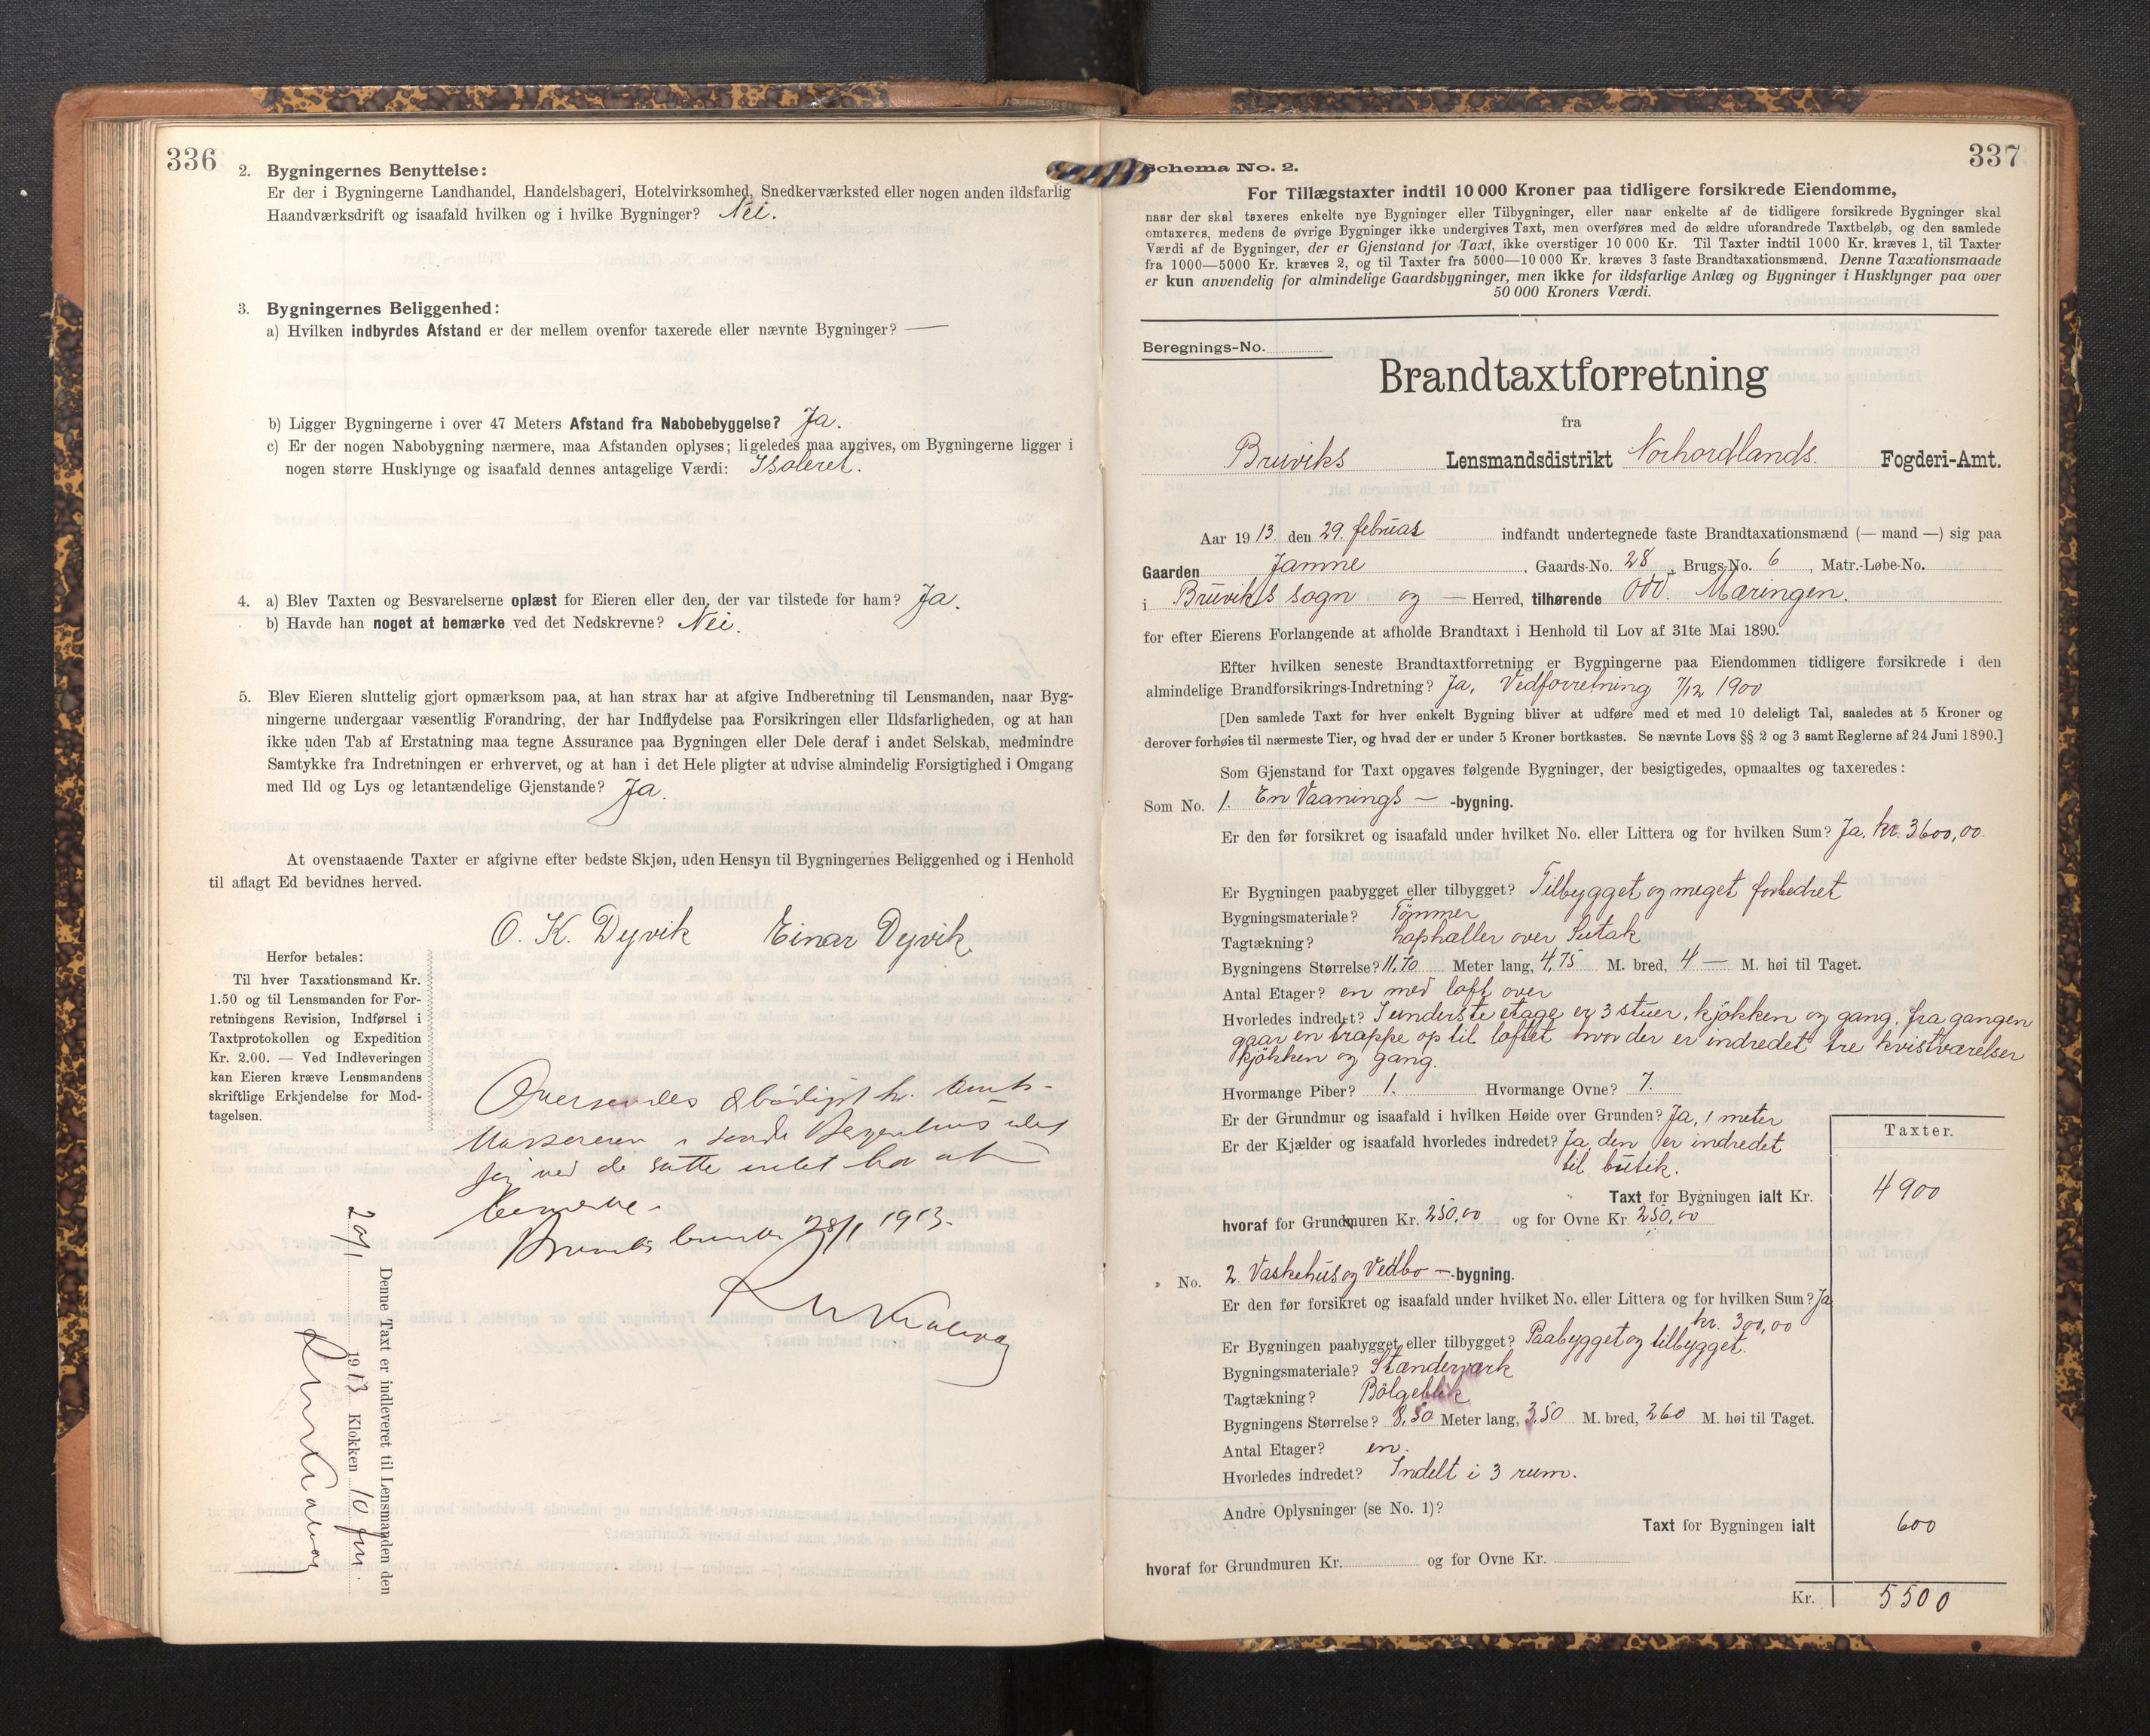 336
2. Bygningernes Benyttelse:
Er der i Bygningerne Landhandel, Handelsbageri, Hotelvirksomhed, Snedkerværksted eller nogen anden ildsfarlig
Haandværksdrift og isaafald hvilken og i hvilke Bygninger? Nei.
3. Bygningernes Beliggenhed:
a) Hvilken indbyrdes Afstand er der mellem ovenfor taxerede eller nævnte Bygninger? —
b) Ligger Bygningerne i over 47 Meters Afstand fra Nabobebyggelse? Ja.
c) Er der nogen Nabobygning nærmere, maa Afstanden oplyses; ligeledes maa angives, om Bygningerne ligger i
nogen større Husklynge og isaafald dennes antagelige Værdi: Isoleret.
4. a) Blev Taxten og Besvarelserne oplæst for Eieren eller den, der var tilstede for ham? Ja.
b) Havde han noget at bemærke ved det Nedskrevne? Nei.
5. Blev Eieren sluttelig gjort opmærksom paa, at han strax har at afgive Indberetning til Lensmanden, naar Byg-
ningerne undergaar væsentlig Forandring, der har Indflydelse paa Forsikringen eller Ildsfarligheden, og at han
ikke uden Tab af Erstatning maa tegne Assurance paa Bygningen eller Dele deraf i andet Selskab, medmindre
Samtykke fra Indretningen er erhvervet, og at han i det Hele pligter at udvise almindelig Forsigtighed i Omgang
med Ild og Lys og letantændelige Gjenstande? Ja.
At ovenstaaende Taxter er afgivne efter bedste Skjøn, uden Hensyn til Bygningernes Beliggenhed og i Henhold
til aflagt Ed bevidnes herved.
O. K. Dyvik Einar Dyvik
Herfor betales:
Til hver Taxationsmand Kr.
1.50 og til Lensmanden for For-
retningens Revision, Indførsel i
Taxtprotokollen og Expedition
Kr. 2.00. — Ved Indleveringen
kan Eieren kræve Lensmandens
skriftlige Erkjendelse for Mod-
tagelsen.
Oversendes ærbødigst hr. Amts-
kassereren i søndre Bergenhus idet
jeg ved de satte intet har at
bemerke.
28/1 1913.
Denne Taxt er indleveret til Lensmanden den
1913 Klokken 10 fm.
337
Schema No. 2.
For Tillægstaxter indtil 10 000 Kroner paa tidligere forsikrede Eiendomme,
naar der skal taxeres enkelte nye Bygninger eller Tilbygninger, eller naar enkelte af de tidligere forsikrede Bygninger skal
omtaxeres, medens de øvrige Bygninger ikke undergives Taxt, men overføres med de ældre uforandrede Taxtbeløb, og den samlede
Værdi af de Bygninger, der er Gjenstand for Taxt, ikke overstiger 10 000 Kr. Til Taxter indtil 1000 Kr. kræves 1, til Taxter
fra 1000—5000 Kr. kræves 2, og til Taxter fra 5000—10 000 Kr. kræves 3 faste Brandtaxationsmænd. Denne Taxationsmaade
er kun anvendelig for almindelige Gaardsbygninger, men ikke for ildsfarlige Anlæg og Bygninger i Husklynger paa over
50 000 Kroners Værdi.
Beregnings-No.
Brandtaxtforretning
fra
Bruviks Lensmandsdistrikt Norhordlands. Fogderi-Amt.
Aar 1913. den 29. februar indfandt undertegnede faste Brandtaxationsmænd (— mand —) sig paa
Gaarden Jamne, Gaards-No. 28, Brugs-No. 6, Matr.-Løbe-No.
i Bruviks sogn og — Herred, tilhørende Odd. Mæringen.
for efter Eierens Forlangende at afholde Brandtaxt i Henhold til Lov af 31te Mai 1890.
Efter hvilken seneste Brandtaxtforretning er Bygningerne paa Eiendommen tidligere forsikrede i den
almindelige Brandforsikrings-Indretning? Ja, Vedforretning 7/12 1900
[Den samlede Taxt for hver enkelt Bygning bliver at udføre med et med 10 deleligt Tal, saaledes at 5 Kroner og
derover forhøies til nærmeste Tier, og hvad der er under 5 Kroner bortkastes. Se nævnte Lovs §§ 2 og 3 samt Reglerne af 24 Juni 1890.]
Som Gjenstand for Taxt opgaves følgende Bygninger, der besigtigedes, opmaaltes og taxeredes:
Som No. 1. En Vaanings — -bygning.
Er den før forsikret og isaafald under hvilket No. eller Littera og for hvilken Sum? Ja, kr. 3600,00.
Er Bygningen paabygget eller tilbygget? Tilbygget og meget forbedret
Bygningsmateriale? Tømmer
Tagtækning? Laphæller over Sutak
Bygningens Størrelse? 11,70 Meter lang, 4,75 M. bred, 4 — M. høi til Taget.
Antal Etager? en med loft over
Hvorledes indredet? I underste etage er 3 stuer, kjøkken og gang, fra gangen
gaar en trappe op til loftet hvor der er indredet tre kvistværelser
kjøkken og gang.
Hvormange Piber? 1. Hvormange Ovne? 7.
Er der Grundmur og isaafald i hvilken Høide over Grunden? Ja, 1 meter
Er der Kjælder og isaafald hvorledes indredet? Ja, den er indredet
til butik.
Taxter.
Taxt for Bygningen ialt Kr. 4900
hvoraf for Grundmuren Kr. 250,00 og for Ovne Kr. 250,00
" No. 2. Vaskehus og Vedbo — -bygning.
Er den før forsikret og isaafald under hvilket No. eller Littera og for hvilken Sum? Ja
kr. 300,00
Er Bygningen paabygget eller tilbygget? Paabygget og tilbygget.
Bygningsmateriale? Stænderværk
Tagtækning? Bölgeblik
Bygningens Størrelse? 8,50 Meter lang, 3,50 M. bred, 260 M. høi til Taget.
Antal Etager? en.
Hvorledes indredet? Indelt i 3 rum.
Andre Oplysninger (se No. 1)?
Taxt for Bygningen ialt 600
hvoraf for Grundmuren Kr. og for Ovne Kr.
Kr. 5500